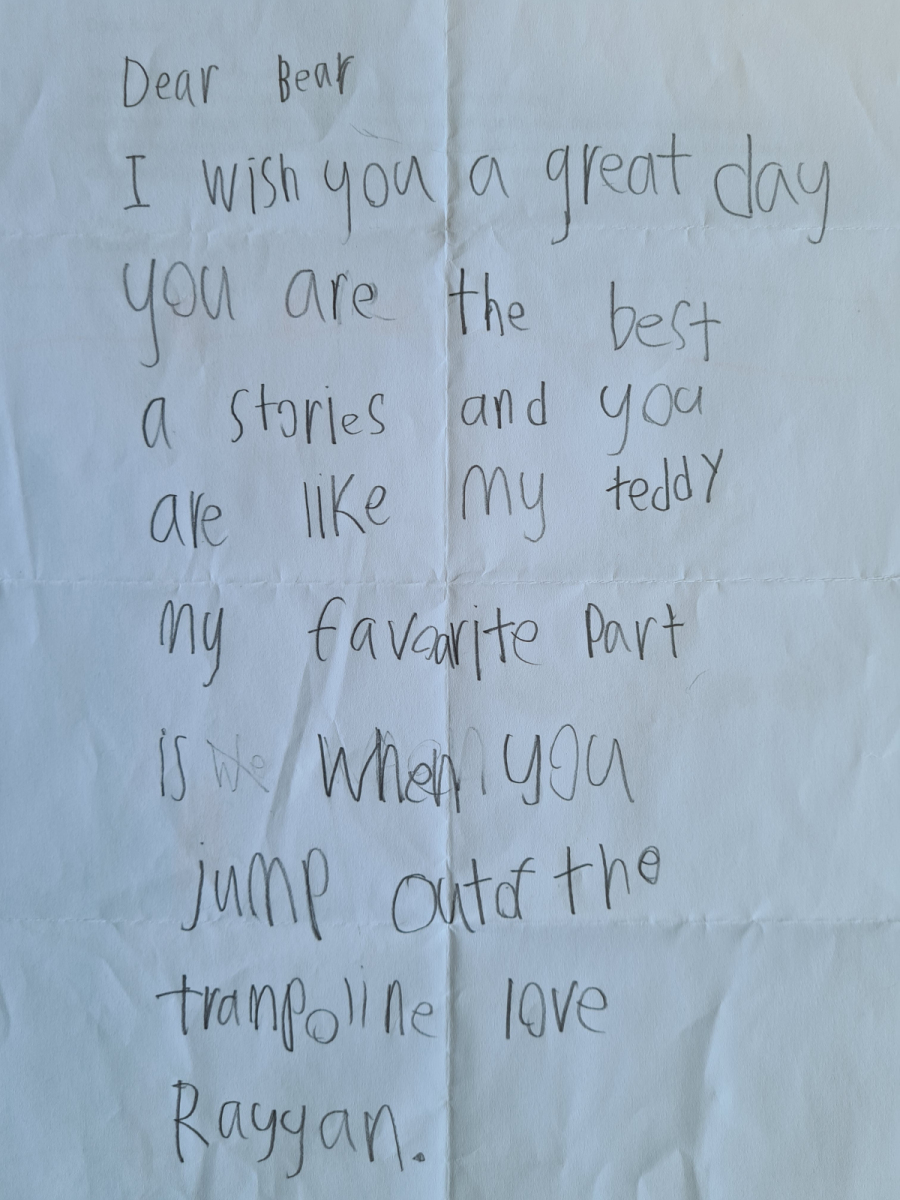 Dear Bear
I wish you a great day
you are the best
a stories and you
are like my teddy
my favoarite part
is we when you
jump out of the
trampoline love
Rayyan.